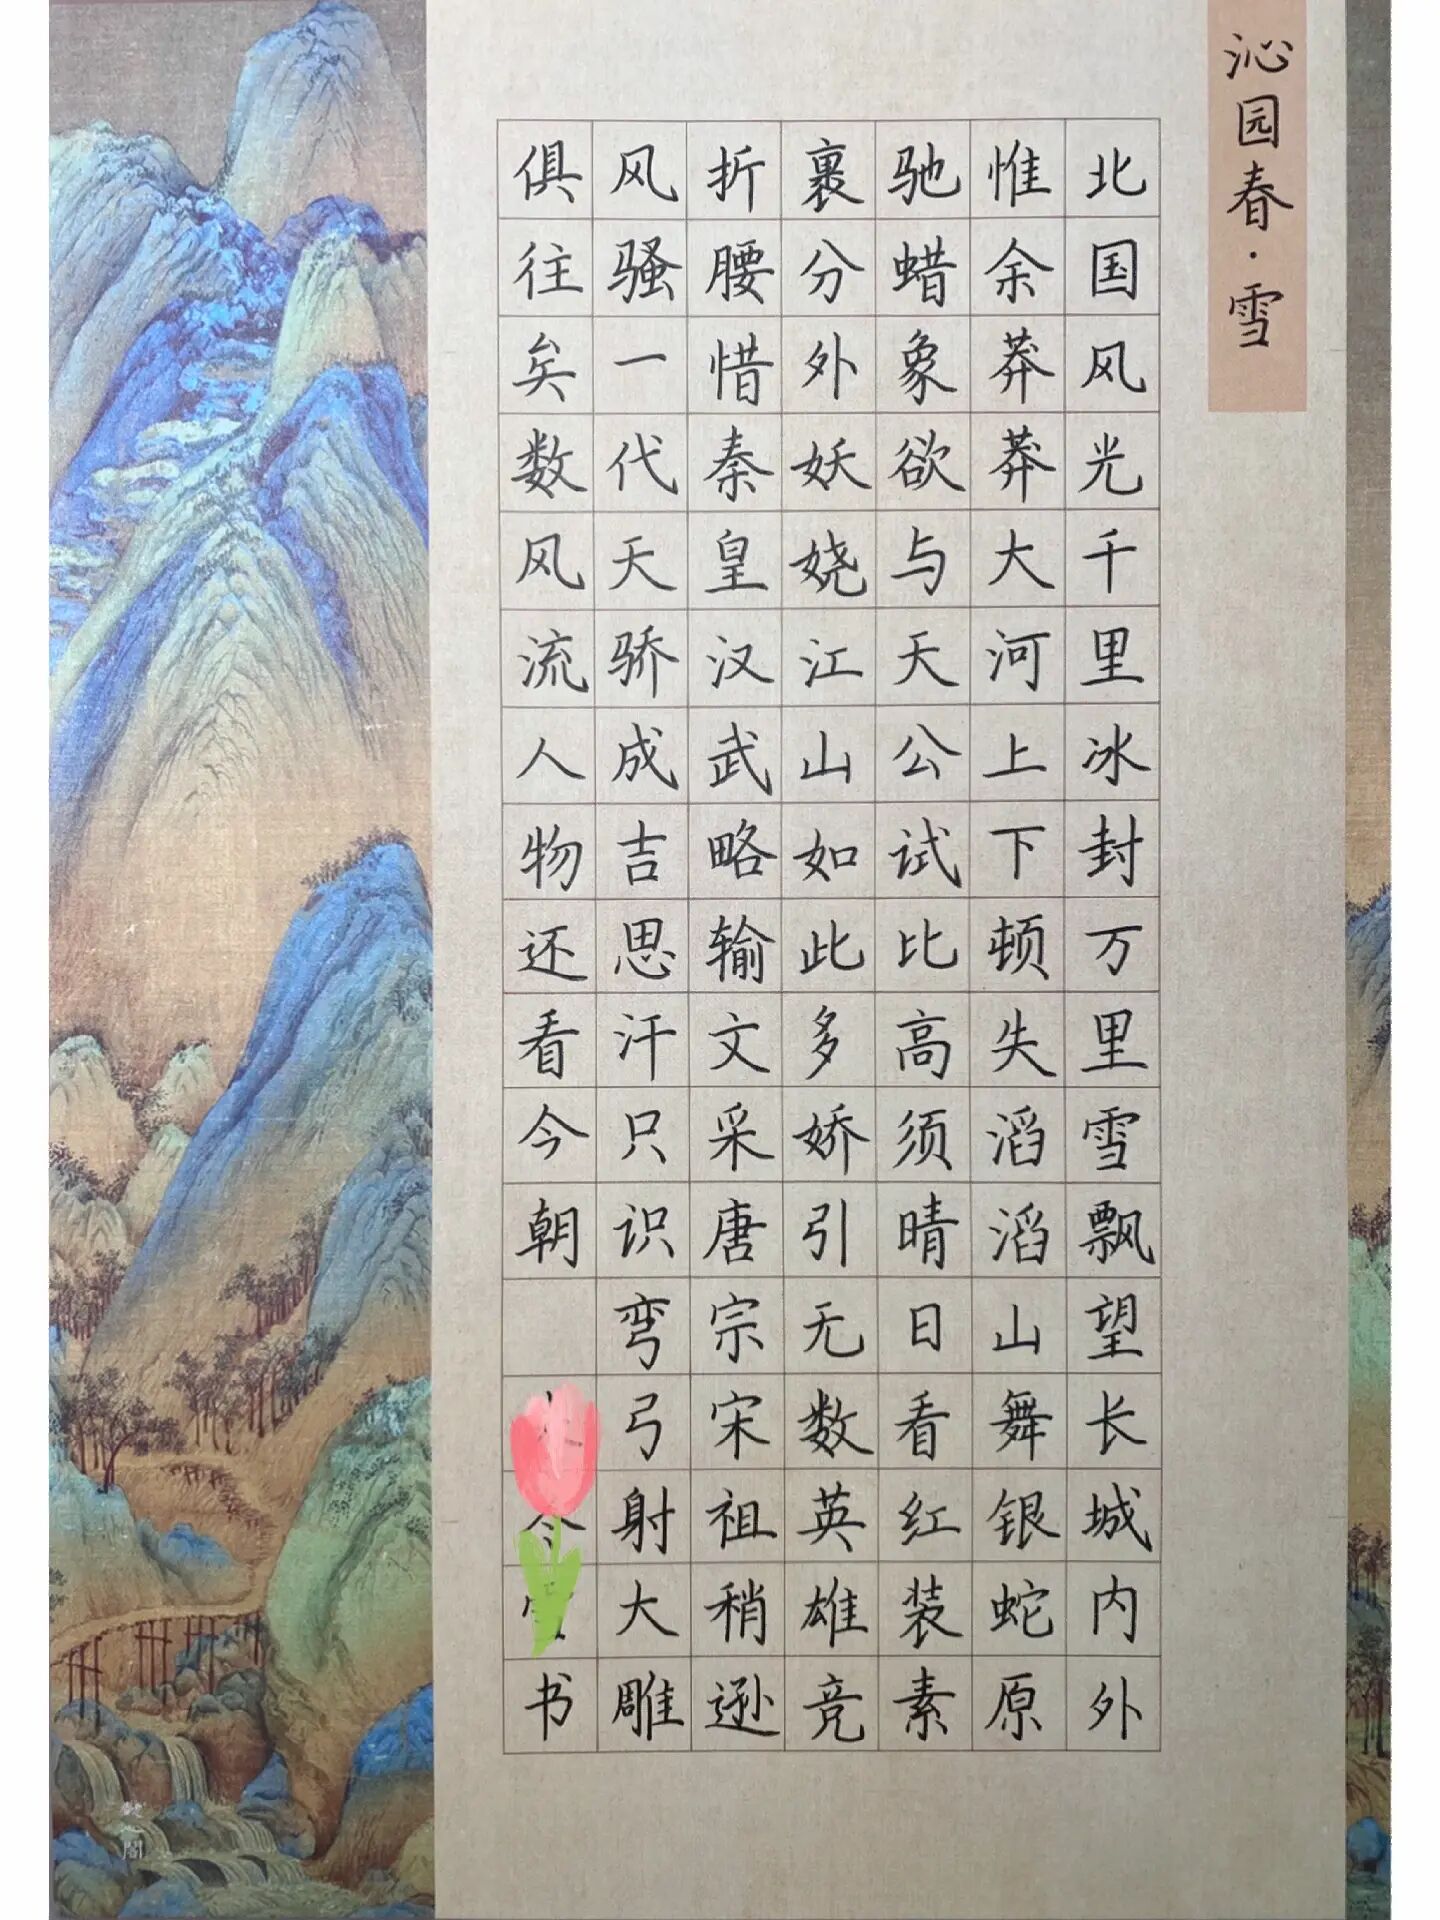 沁园春·雪
北国风光千里冰封万里雪飘望长城内外
惟余莽莽大河上下顿失滔滔山舞银蛇原
驰蜡象欲与天公试比高须晴日看红装素
裹分外妖娆江山如此多娇引无数英雄竞
折腰惜秦皇汉武略输文采唐宗宋祖稍逊
风骚一代天骄成吉思汗只识弯弓射大雕
俱往矣数风流人物还看今朝
书